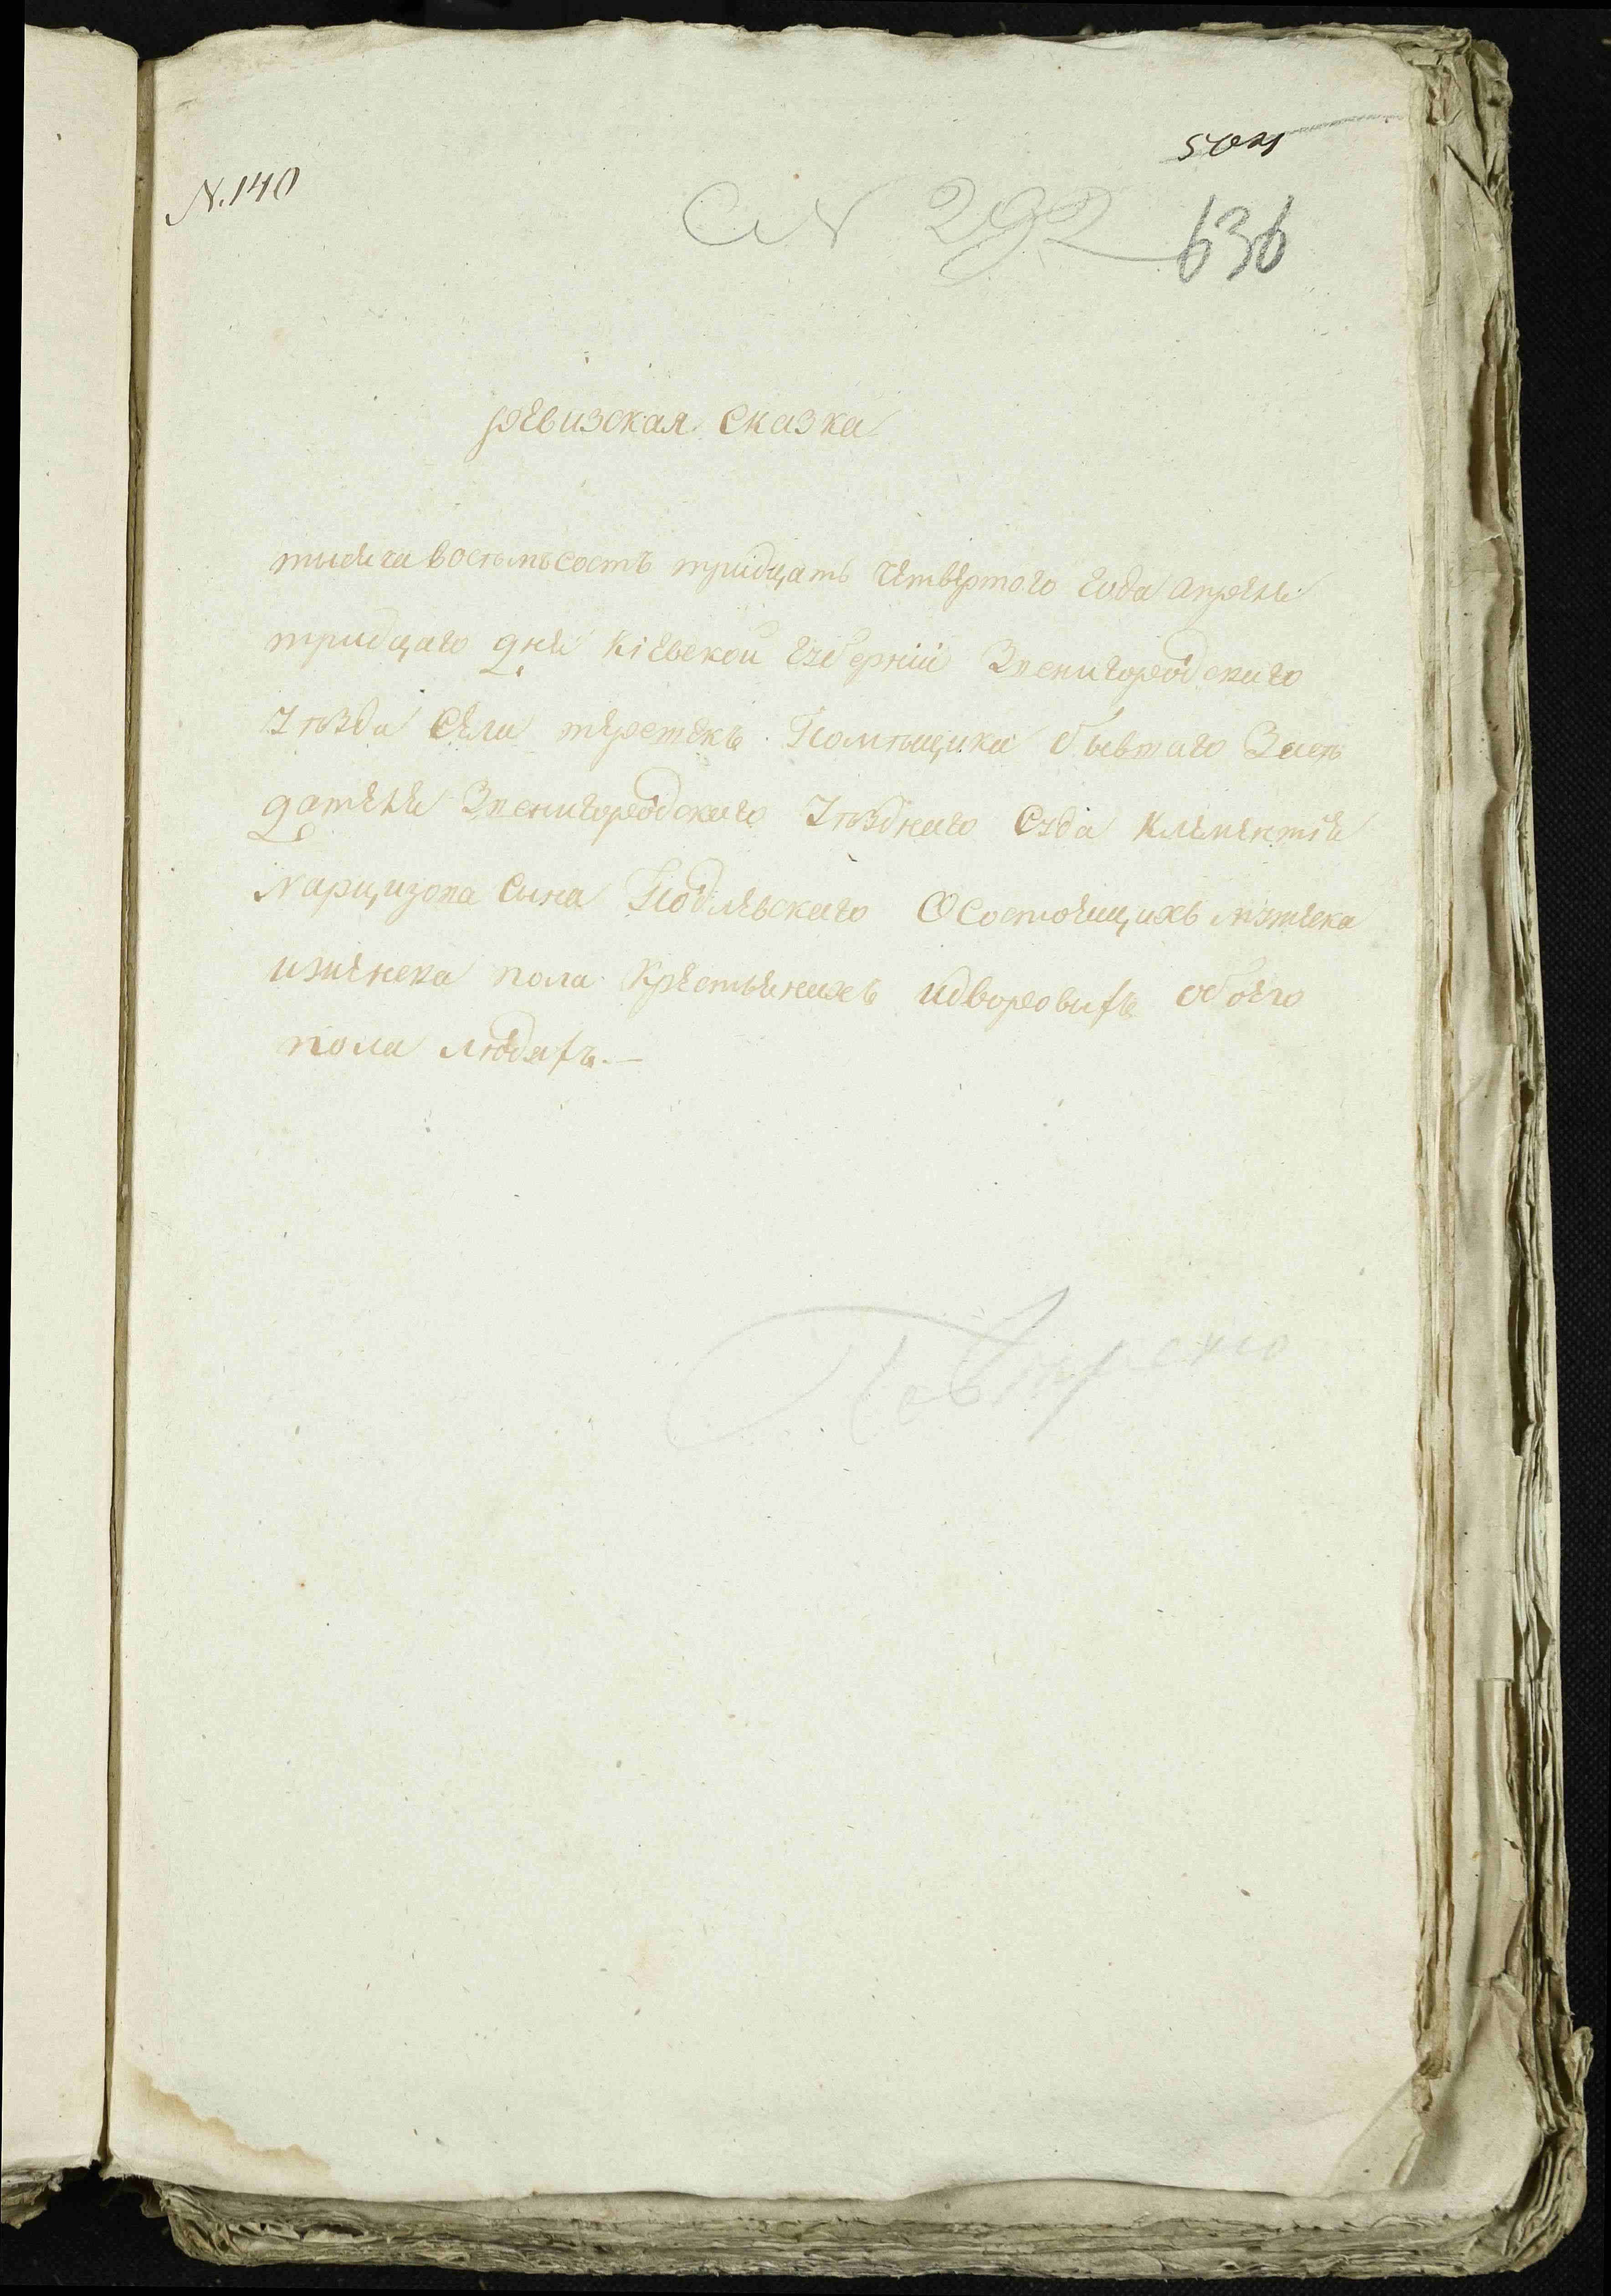 N. 140
504
N 292
636
ревизская сказка
тысяча востьмъсостъ тридцать четвертого года апреля
тридцаго дня Кіевской губерніи Звенигородского
уезда села терешекъ Помѣщика бывшаго Засѣ
дателя Звенигородского уезднаго суда Клементія
Нарцизова сына Подлевского О состоящихъ мужека
иженска пола Крестьянихъ идворовыхъ обоего
пола людяхъ.—